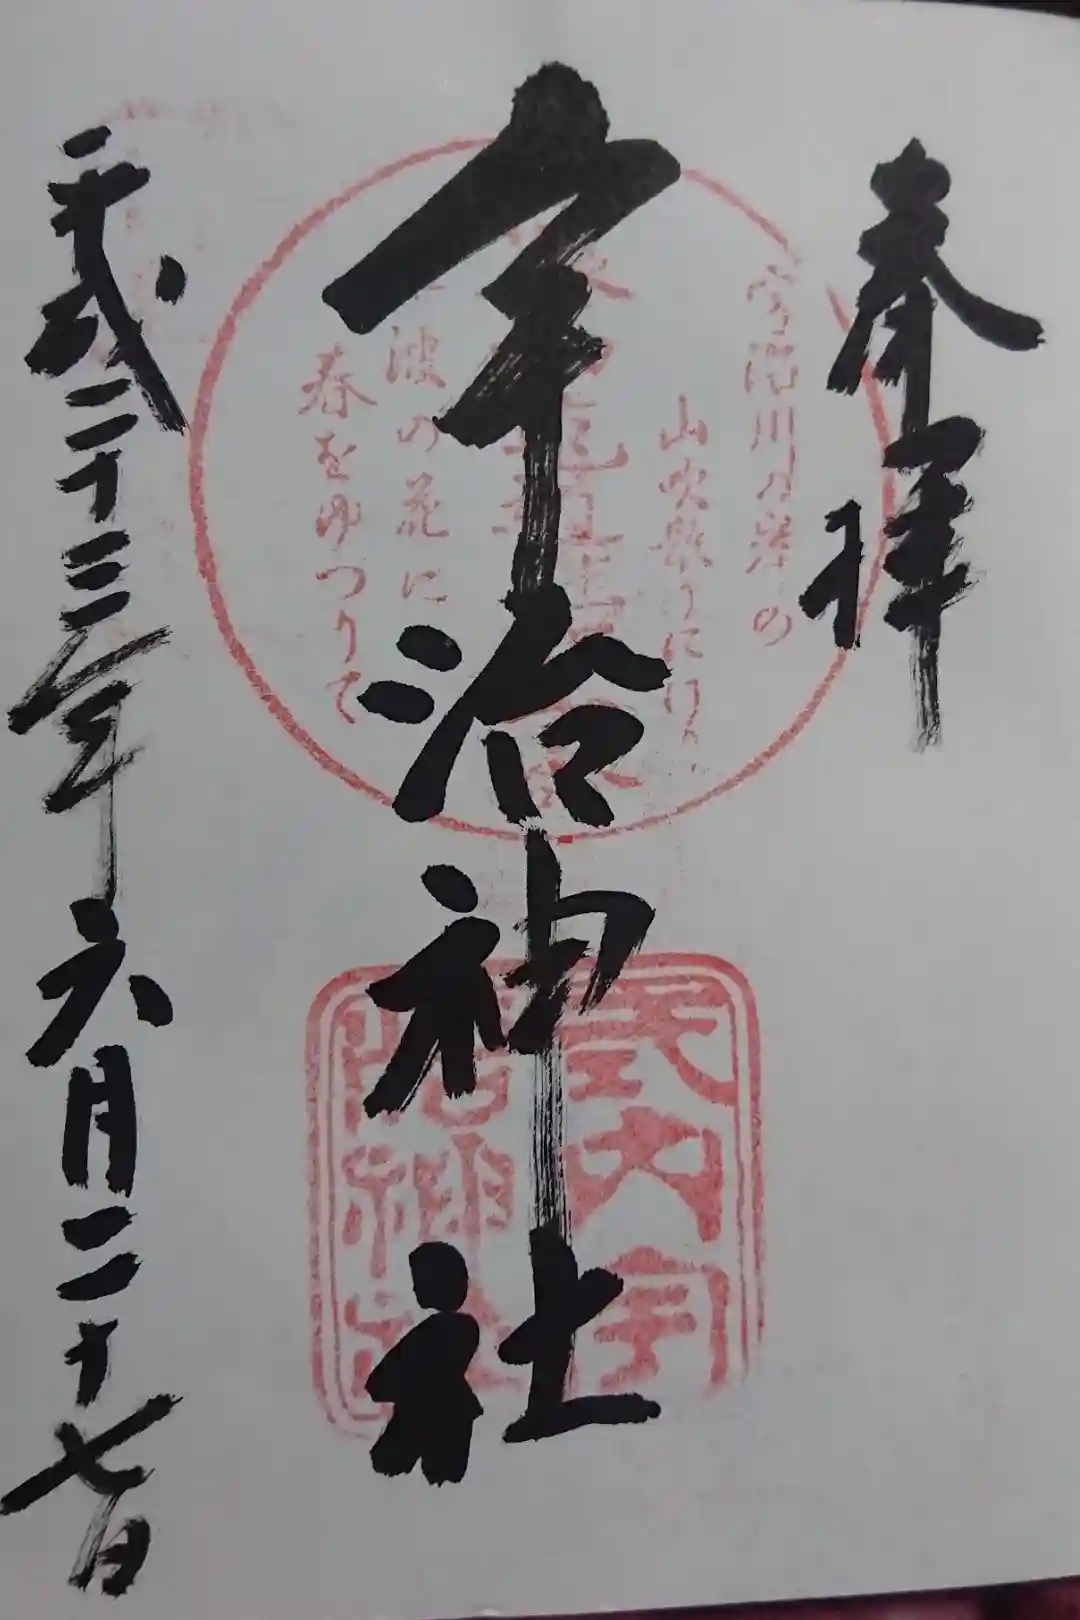 奉拝
宇治川の岸の
山吹散りにけり
宇治神社
波の花に
春をゆづりて
式内宇治神社
平成二十三年六月二十七日